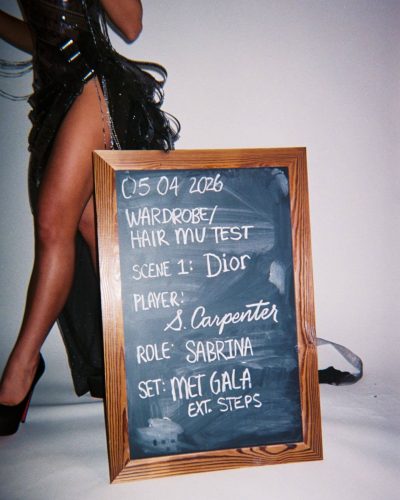 05 04 2026
WARDROBE/
HAIR MU TEST
SCENE 1: Dior
PLAYER:
S. Carpenter
ROLE: SABRINA
SET: MET GALA
EXT. STEPS